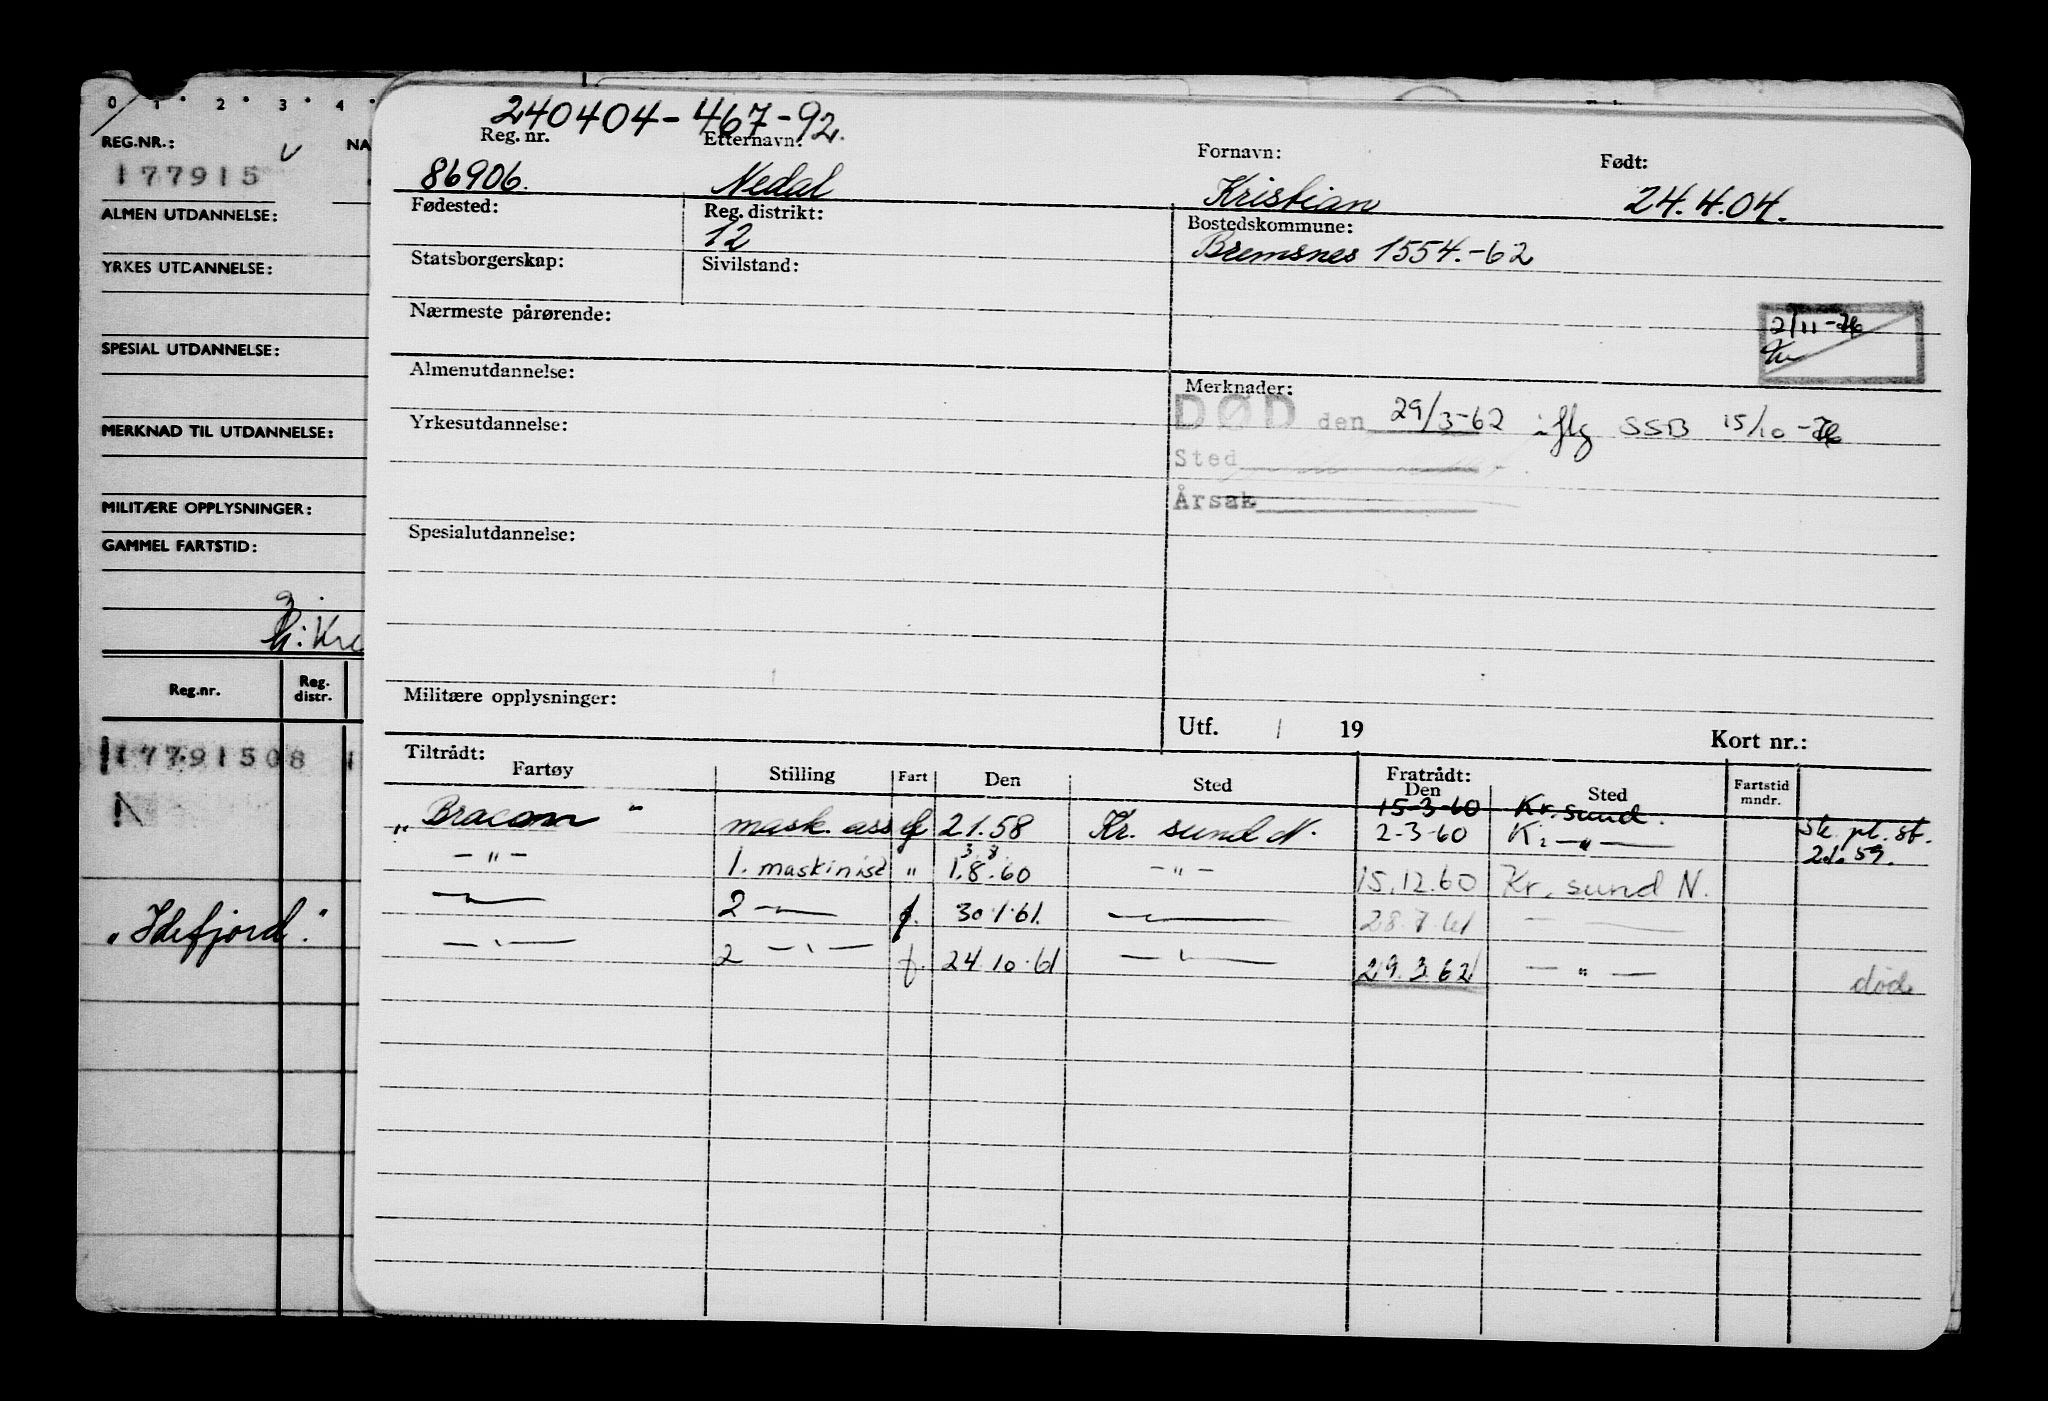 0 1 2 3 4
REG.NR.: NA
177915
ALMEN UTDANNELSE:
YRKES UTDANNELSE:
SPESIAL UTDANNELSE:
MERKNAD TIL UTDANNELSE:
MILITÆRE OPPLYSNINGER:
GAMMEL FARTSTID:
Reg.nr. Reg. distr.
17791508 1
N
"Idefjord."
240404-467-92.
Reg. nr. Etternavn: Fornavn: Født:
86906. Nedal Kristian 24.4.04.
Fødested: Reg. distrikt: Bostedskommune:
12 Bremsnes 1554.-62
Statsborgerskap: Sivilstand:
Nærmeste pårørende:
2/11-76
Almenutdannelse: Merknader:
DØD den 29/3-62 iflg SSB 15/10-76
Yrkesutdannelse:
Sted
Årsak
Spesialutdannelse:
Militære opplysninger:
Utf. / 19 Kort nr.:
Tiltrådt: Fratrådt:
Fartøy Stilling Fart Den Sted Den Sted Fartstid mndr.
15-3-60 Kr.sund.
"Bracom" mask. ass f 2.1.58 Kr. sund N. 2-3-60 K. -"- st.
2.1.59.
-"- 1. maskinist " 1.8.60 -"- 15.12.60 Kr. sund N.
-"- 2 -"- f. 30.1.61. -"- 28.7.61 -"-
-"- 2 -"- f. 24.10.61 -"- 29.3.62 -"- død